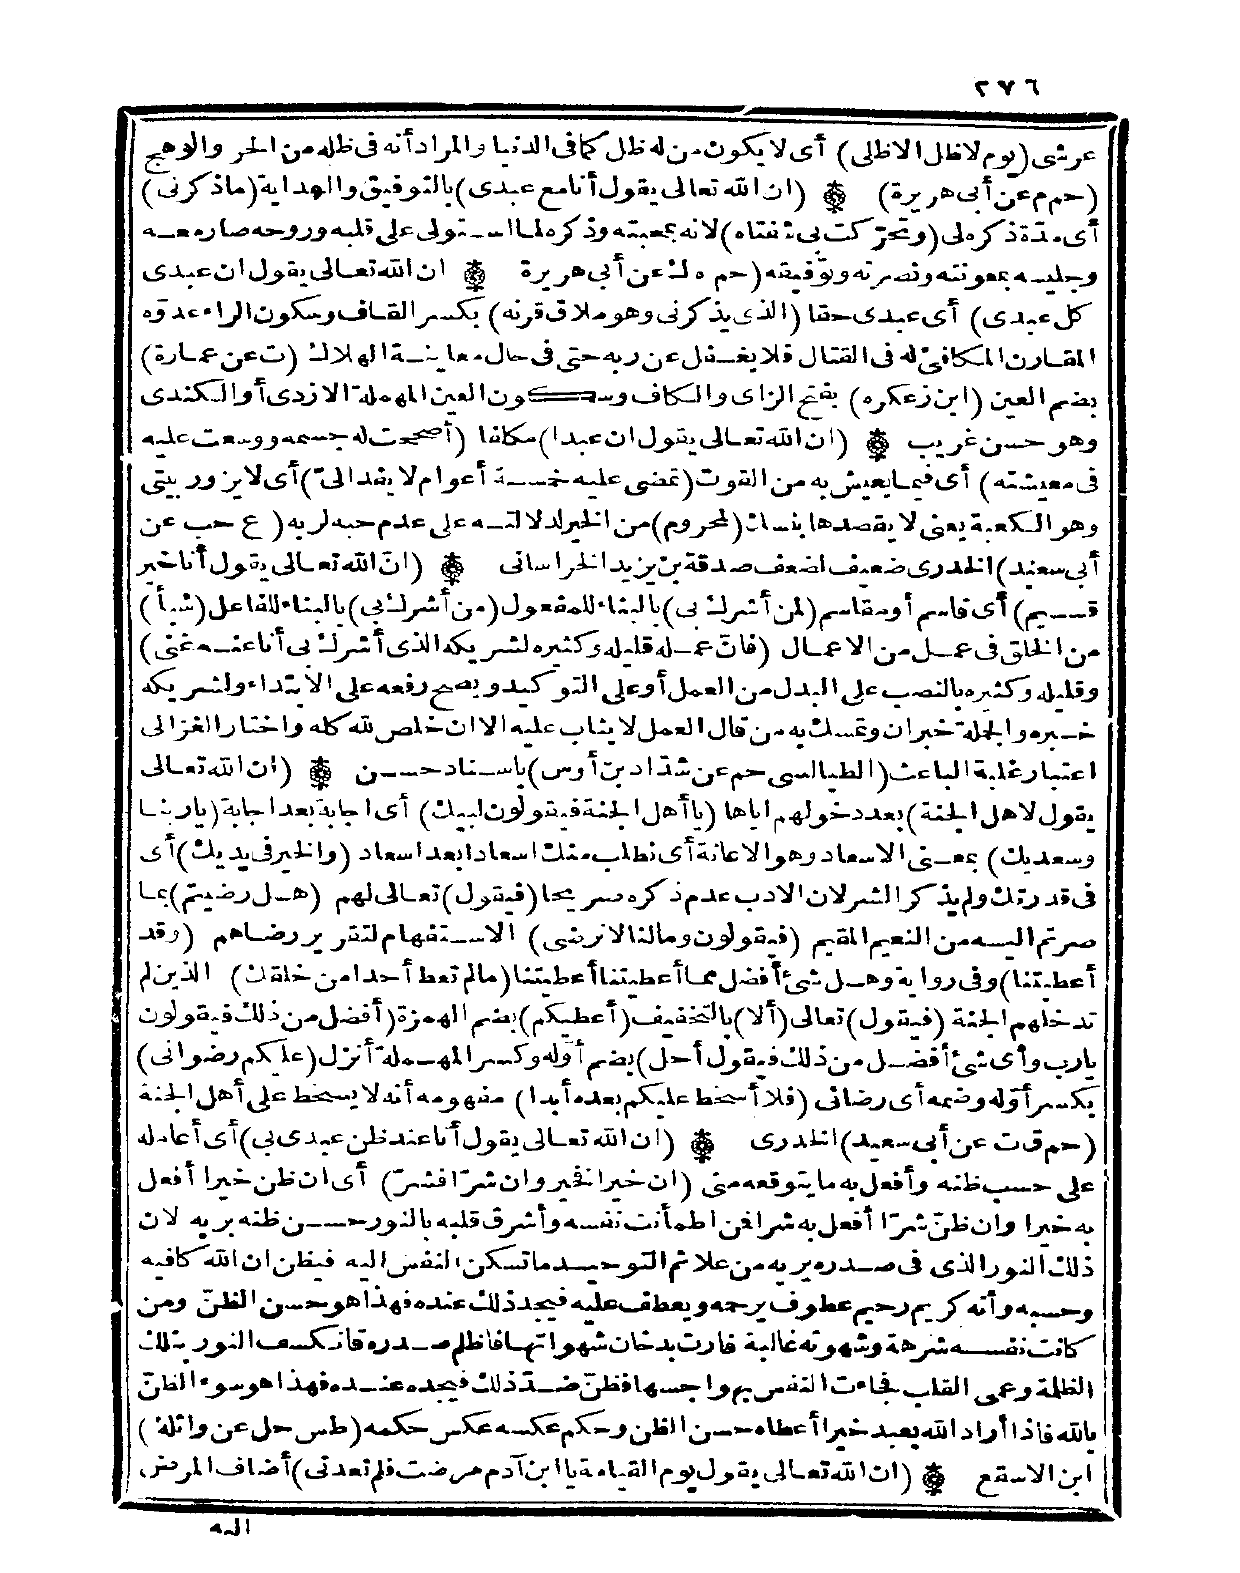 ٢٧٦
عرشى (يوم لا ظل الا ظلى) أى لا يكون من له ظل كما فى الدنيا والمراد أنه فى ظله من الحر والوهج
(حم م عن أبى هريرة) ۞ (ان الله تعالى يقول أنا مع عبدى) بالتوفيق والهداية (ما ذكرنى)
أى مدة ذكره لى (وتحرّكت بى شفتاه) لانه بمحبته وذكره لما استولى على قلبه وروحه صار معه
وجليسه بمعونته ونصرته وتوفيقه (حم ه ك عن أبى هريرة ۞ ان الله تعالى يقول ان عبدى
كل عبدى) أى عبدى حقا (الذى يذكرنى وهو ملاق قرنه) بكسر القاف وسكون الراء عدوّه
المقارن المكافئ له فى القتال فلا يغفل عن ربه حتى فى حال معاينة الهلاك (ت عن عمارة)
بضم العين (ابن زعكره) بفتح الزاى والكاف وسكون العين المهملة الازدى أو الكندى
وهو حسن غريب ۞ (ان الله تعالى يقول ان عبدا) مكلفا (أصححت له جسمه ووسعت عليه
فى معيشته) أى فيما يعيش به من القوت (تمضى عليه خمسة أعوام لا يفد الىّ) أى لا يزور بيتى
وهو الكعبة يعنى لا يقصدها بنسك (لمحروم) من الخير لدلالته على عدم حبه لربه (ع حب عن
أبى سعيد) الخدرى ضعيف لضعف صدقة بن يزيد الخراسانى ۞ (انّ الله تعالى يقول أنا خير
قسيم) أى قاسم أو مقاسم (لمن أشرك بى) بالبناء للمفعول (من أشرك بى) بالبناء للفاعل (شيأ)
من الخلق فى عمل من الاعمال (فانّ عمله قليله وكثيره لشريكه الذى أشرك بى أنا عنه غنى)
وقليله وكثيره بالنصب على البدل من العمل أو على التوكيد ويصح رفعه على الابتداء ولشريكه
خبره والجملة خبر ان وتمسك به من قال العمل لا يثاب عليه الا ان خلص لله كله واختار الغزالى
اعتبار غلبة الباعث (الطيالسى حم عن شدّاد بن أوس) باسناد حسن ۞ (ان الله تعالى
يقول لاهل الجنة) بعد دخولهم اياها (يا أهل الجنة فيقولون لبيك) أى اجابة بعد اجابة (يا ربنا
وسعديك) بمعنى الاسعاد وهو الاعانة أى نطلب منك اسعادا بعد اسعاد (والخير فى يديك) أى
فى قدرتك ولم يذكر الشر لان الادب عدم ذكره صريحا (فيقول) تعالى لهم (هل رضيتم) بما
صرتم اليه من النعيم المقيم (فيقولون وما لنا لا نرضى) الاستفهام لتقرير رضاهم (وقد
أعطيتنا) وفى رواية وهل شئ أفضل مما أعطيتنا أعطيتنا (ما لم تعط أحدا من خلقك) الذين لم
تدخلهم الجنة (فيقول) تعالى (ألا) بالتخفيف (أعطيكم) بضم الهمزة (أفضل من ذلك فيقولون
يا رب وأى شئ أفضل من ذلك فيقول أحل) بضم أوّله وكسر المهملة أنزل (عليكم رضوانى)
بكسر أوّله وضمه أى رضائى (فلا أسخط عليكم بعده أبدا) مفهومه أنه لا يسخط على أهل الجنة
(حم ق ت عن أبى سعيد) الخدرى ۞ (ان الله تعالى يقول أنا عند ظن عبدى بى) أى أعامله
على حسب ظنه وأفعل به ما يتوقعه منى (ان خيرا فخير وان شرّا فشرّ) أى ان ظن خيرا أفعل
به خيرا وان ظنّ شرّا أفعل به شرا فمن اطمأنت نفسه وأشرق قلبه بالنور حسن ظنه بربه لان
ذلك النور الذى فى صدره يريه من علائم التوحيد ما تسكن النفس اليه فيظن ان الله كافيه
وحسبه وأنه كريم رحيم عطوف يرحمه ويعطف عليه فيجد ذلك عنده فهذا هو حسن الظنّ ومن
كانت نفسه شرهة وشهوته غالبة فارت بدخان شهواتها فاظلم صدره فانكسف النور بتلك
الظلمة وعمى القلب فجاءت النفس بهواجسها فظنّ ضدّ ذلك فيجده عنده فهذا هو سوء الظنّ
بالله فاذا أراد الله بعبد خيرا أعطاه حسن الظن وحكم عكسه عكس حكمه (طس حل عن واثلة)
ابن الاسقع ۞ (ان الله تعالى يقول يوم القيامة يا ابن آدم مرضت فلم تعدنى) أضاف المرض
اليه